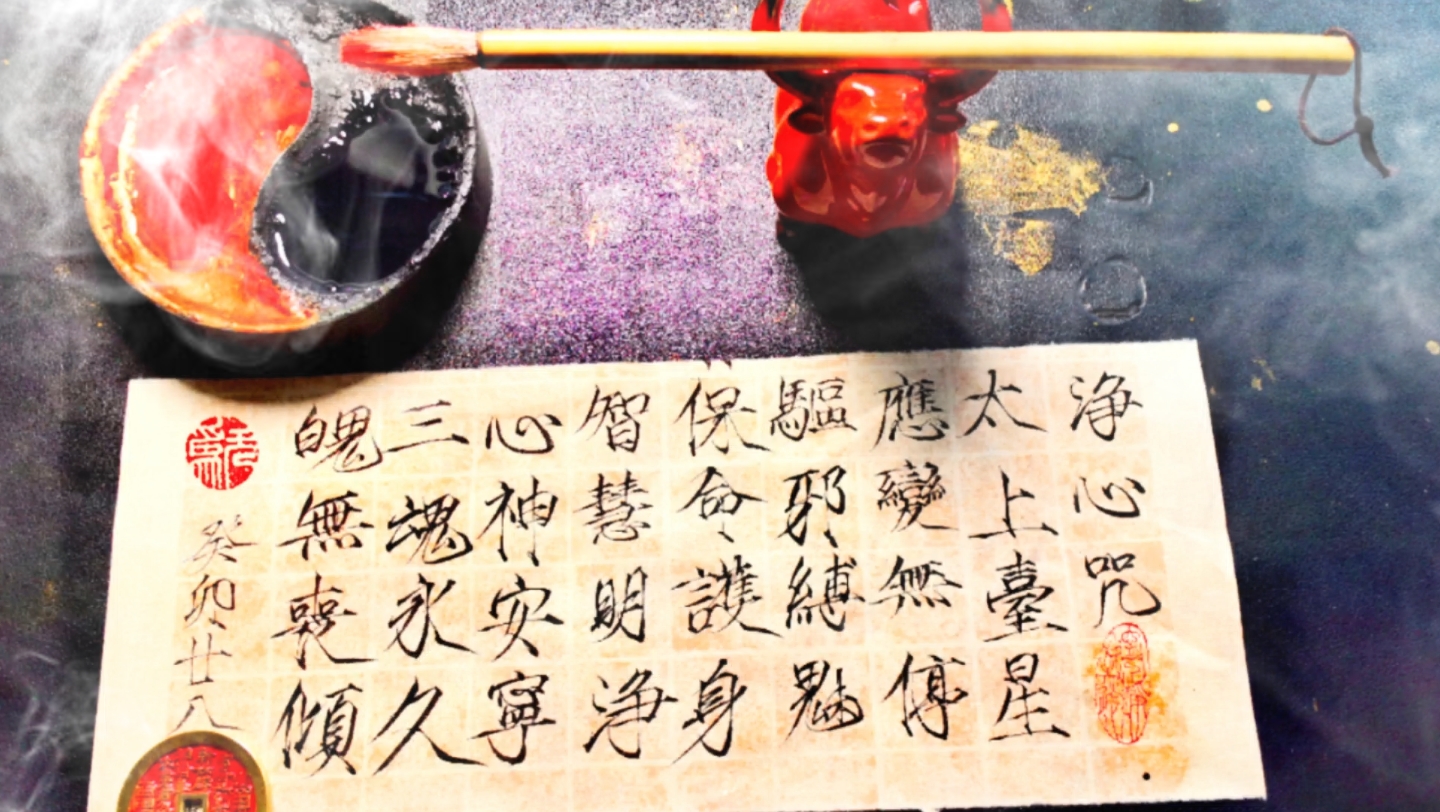 浄心咒
太上臺星
應變無停
驅邪縛魅
保命護身
智慧明浄
心神安寧
三魂永久
魄無喪傾
癸卯廿八